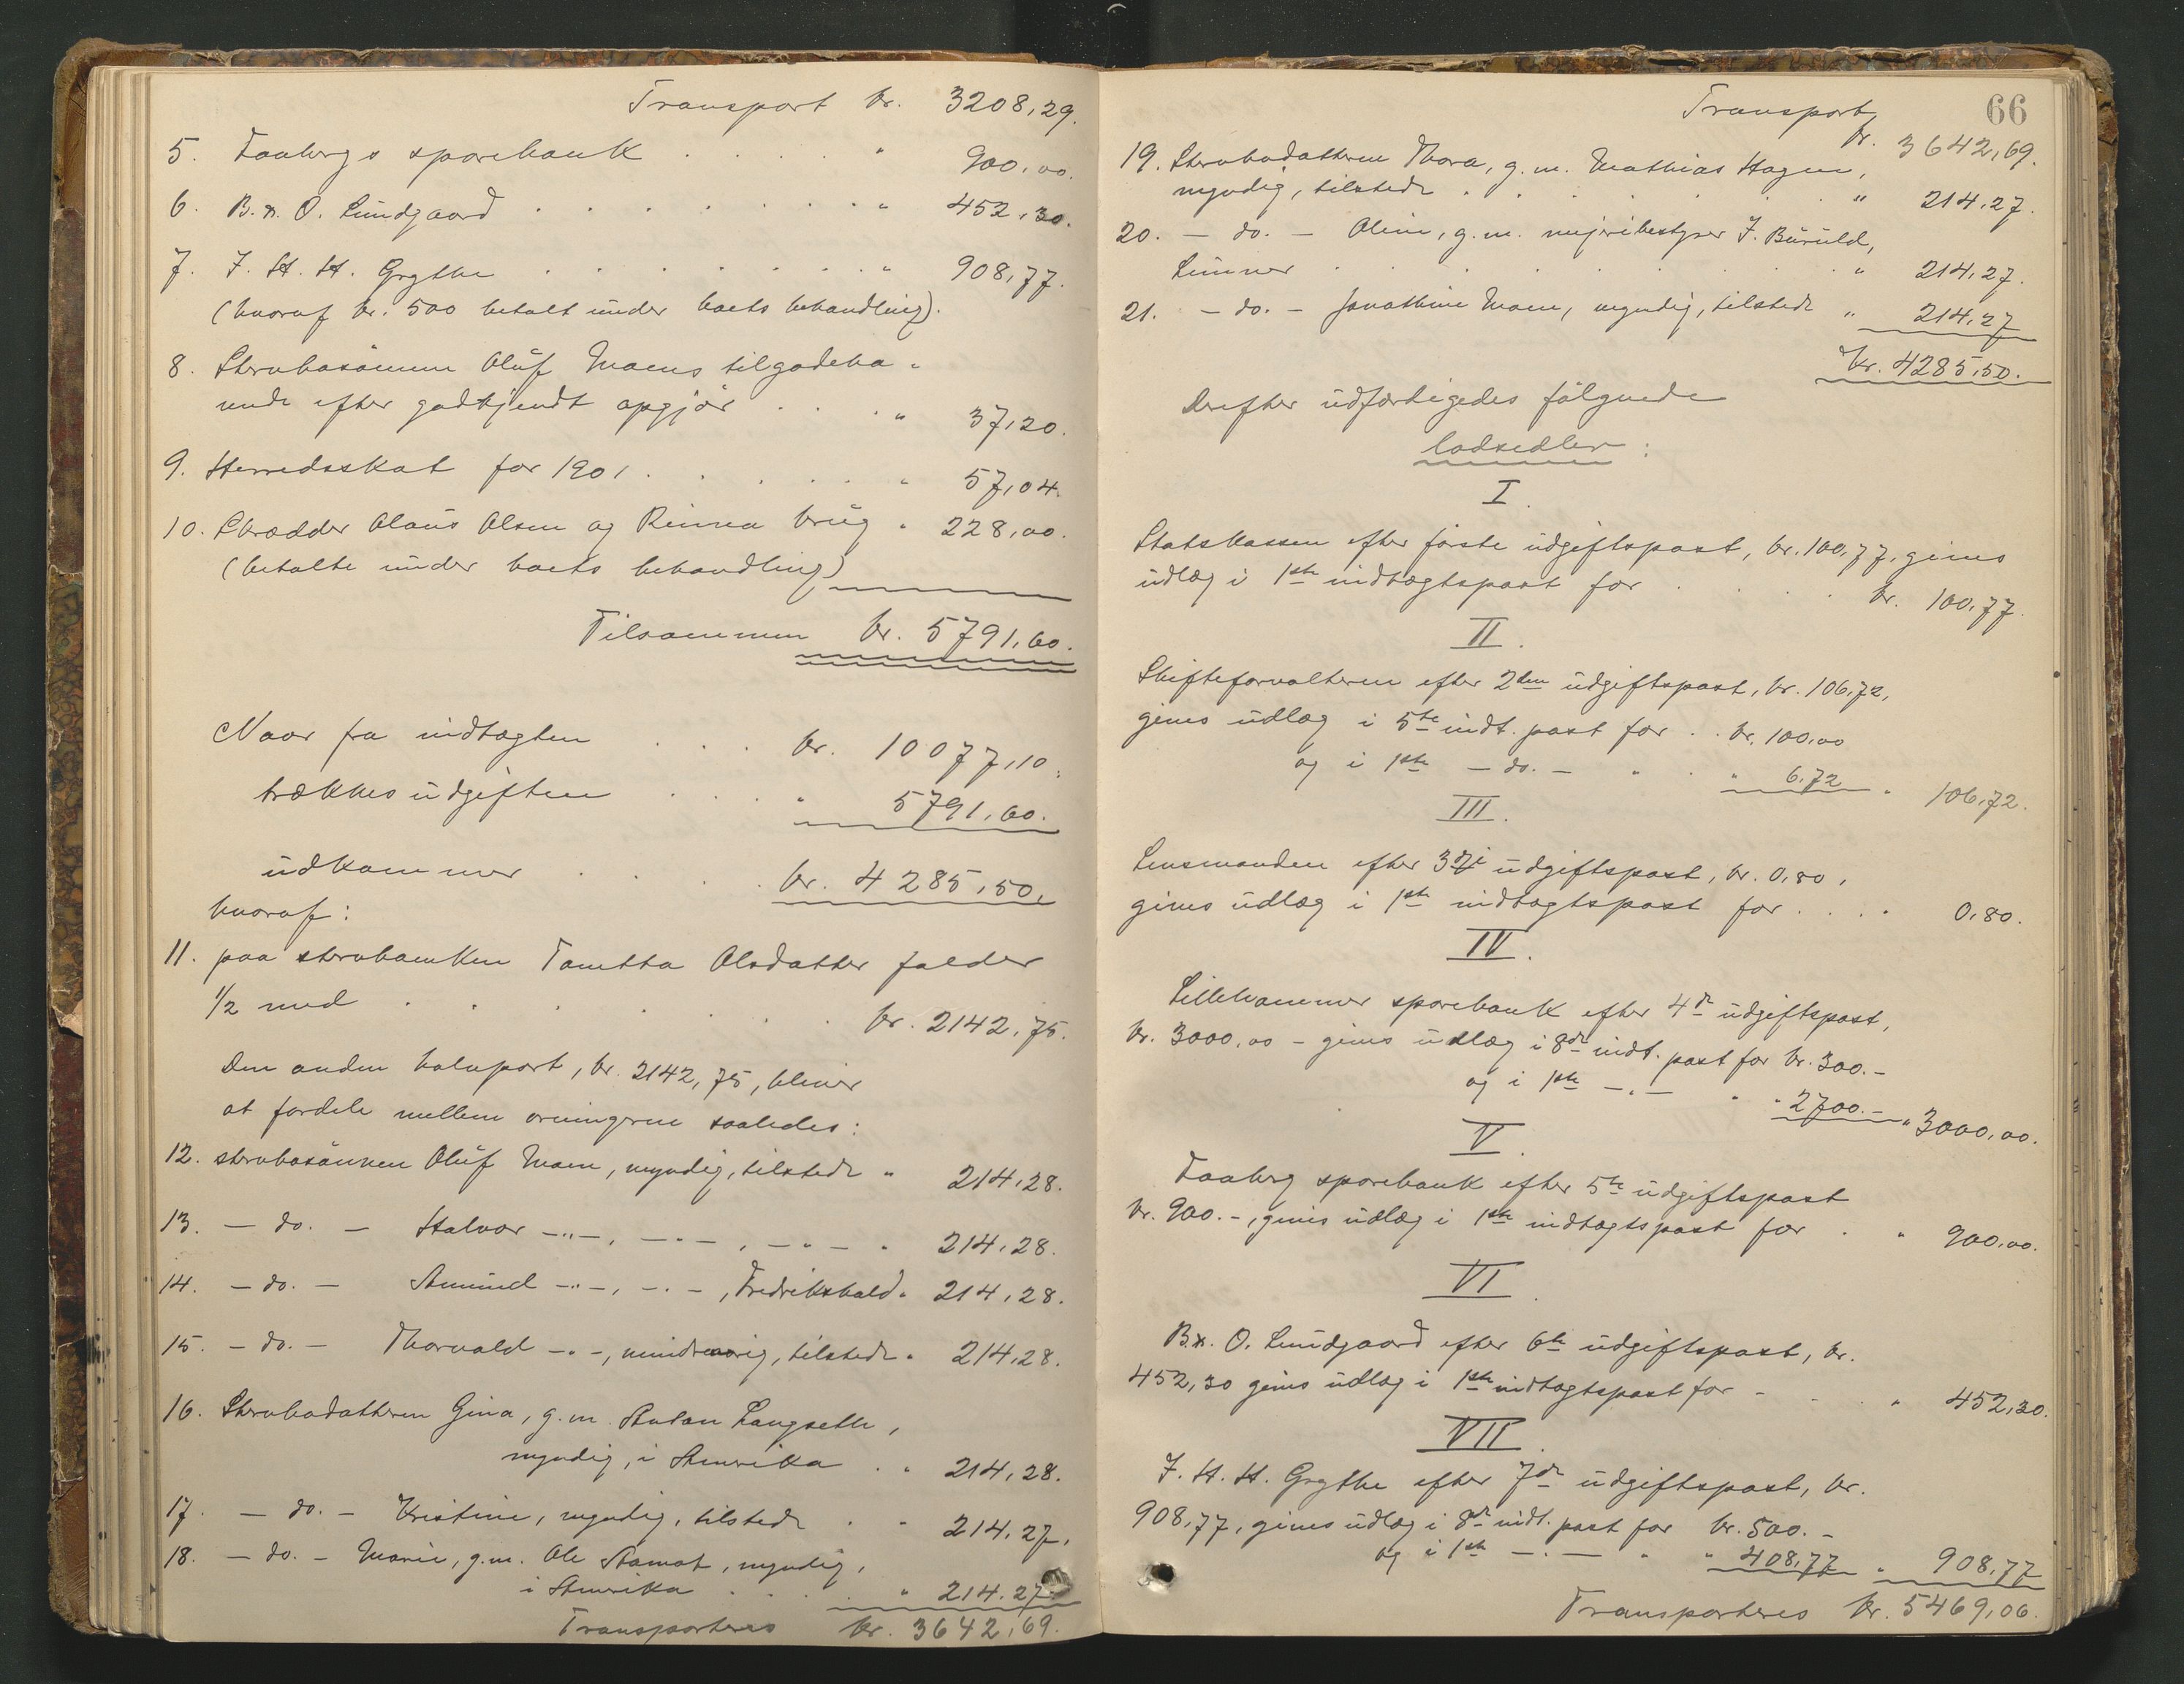 Transport kr. 3208,29.
5. Faabergs sparebank . . . . " 900,00.
6. B.x. O. Lundgaard . . . . . . . " 452,30.
7. F. H. H. Grythe . . . . . . . " 908,77.
(hvoraf kr. 500 betalt under boets behandling).
8. Stervbosønnen Oluf Moens tilgodeha-
vende efter godkjendt opgjør . . . " 37,20.
9. Herredsskat for 1901 . . . . . " 57,04.
10. Skrædder Olaus Olsen og Rinna brug " 228,00.
(betalte under boets behandling)
Tilsammen kr. 5791,60.
Naar fra indtægten . . . kr. 10077,10.
trækkes udgiften . . . " 5791,60.
udkommer . . . . kr. 4285,50.
hvoraf:
11. paa stervbaenken Tanetta Olsdatter falder
1/2 med . . . . . . . kr. 2142,75.
Den anden halvpart, kr. 2142,75, bliver
at fordele mellem arvingerne saaledes:
12. stervbosønnen Oluf Moen, myndig, tilstede " 214,28.
13. - do. - Halvor -"-, -"-, -"- " 214,28.
14. - do. - Amund -"-, -"-, Fredrikshald " 214,28.
15. - do. - Thorvald -"-, mindreaarig, tilstede " 214,28.
16. Stervbodatteren Gina, g.m. Anton Langseth,
myndig, i Amerika . " 214,28.
17. - do. - Kristine, myndig, tilstede . " 214,27.
18. - do. - Marie, g.m. Ole Aamot, myndig,
i Amerika . . . . " 214.27.
Transporteres kr. 3642,69.
66
Transport,
kr. 3642,69.
19. Stervbodatteren Thora, g.m. Mathias Hagen,
myndig, tilstede . . . . . . " 214,27.
20. - do. - Oline, g.m. meieribestyrer J.
Lunner . . . . . . . . " 214,27.
21. - do. - Jonathine Moen, myndig, tilstede " 214,27
Kr. 4285,50.
Derefter udfærdigedes følgende
lodsedler:
I.
Statskassen efter første udgiftspost, kr. 100,77, gives
udlæg i 1ste indtægtspost for . . . . kr. 100,77.
II.
Skifteforvalteren efter 2den udgiftspost, kr. 106,72,
gives udlæg i 5te indt. post for . . kr. 100,00
og i 1ste - do. - " . " 6,72 " 106,72.
III.
Lensmanden efter 3die udgiftspost, kr. 0,80,
gives udlæg i 1ste indtægtspost for . . . . 0,80.
IV.
Lillehammer sparebank efter 4de udgiftspost,
kr. 3000,00 - gives udlæg i 8de indt. post for kr. 300.-
og i 1ste -"- . " 2700.- " 3000,00.
V.
Faaberg sparebank efter 5te udgiftspost
kr. 900.-, gives udlæg i 1ste indtægtspost for . " 900,00.
VI.
B.x. O. Lundgaard efter 6te udgiftspost, kr.
452,30 gives udlæg i 1ste indtægtspost for - . . " 452,30.
VII.
F. H. H. Grythe efter 7de udgiftspost, kr.
908,77, gives udlæg i 8de indt. post for kr. 500.-
og i 1ste -"- " " 408,77 " 908,77
Transporteres kr. 5469,06.